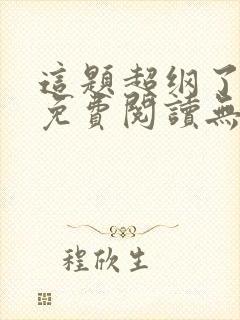 這題超纲了
免費閱讀無
程欣生